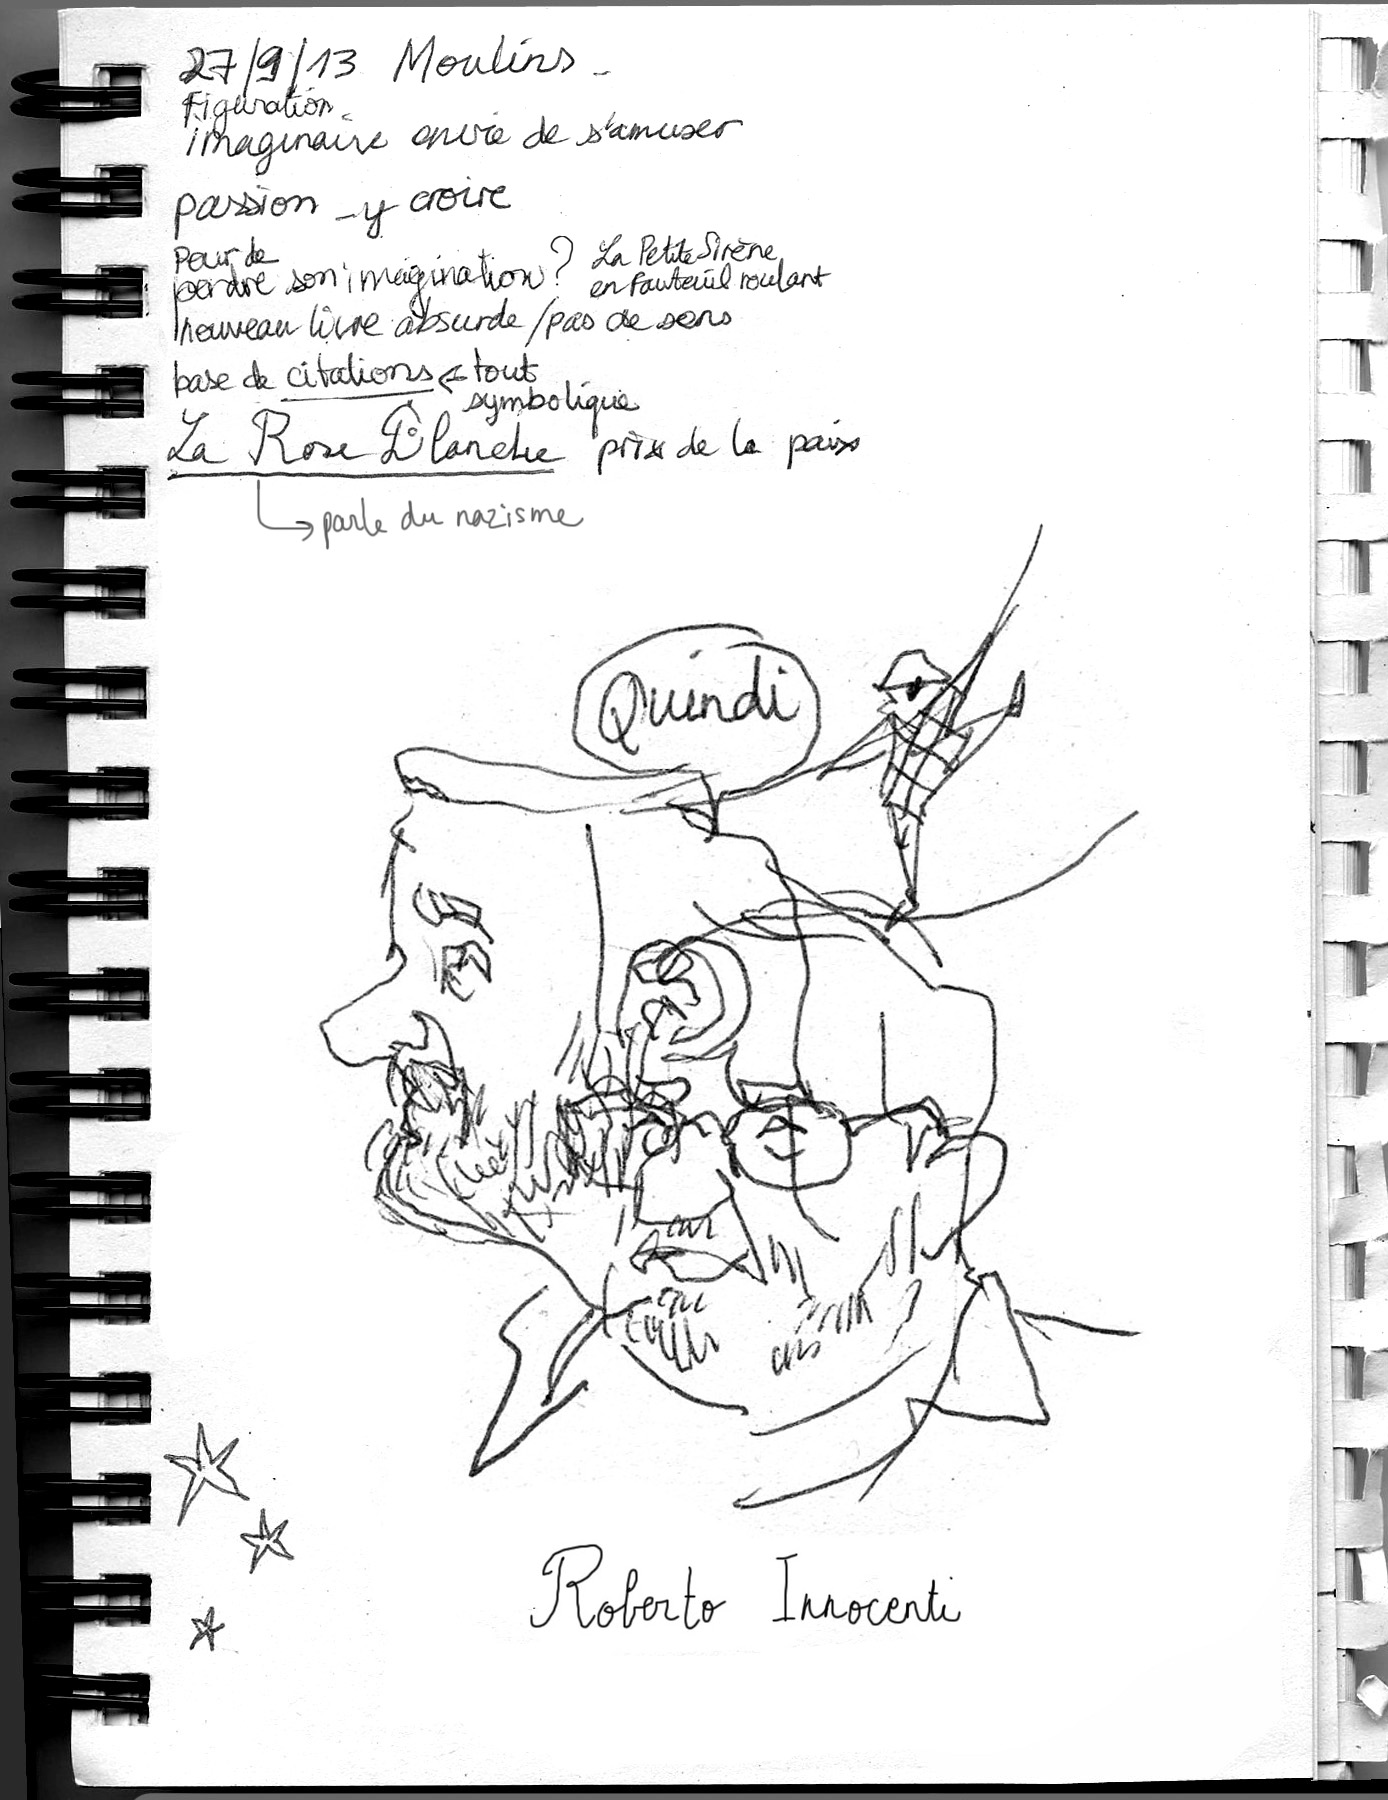 27/9/13 Moulins -
Figuration
imaginaire envie de s'amuser
passion - y croire
Peur de
perdre son imagination ? La Petite Sirène
en fauteuil roulant
nouveau livre absurde / pas de sens
base de citations ← tout
symbolique
La Rose Blanche prix de la paix
→ parle du nazisme
Quindi
Roberto Innocenti